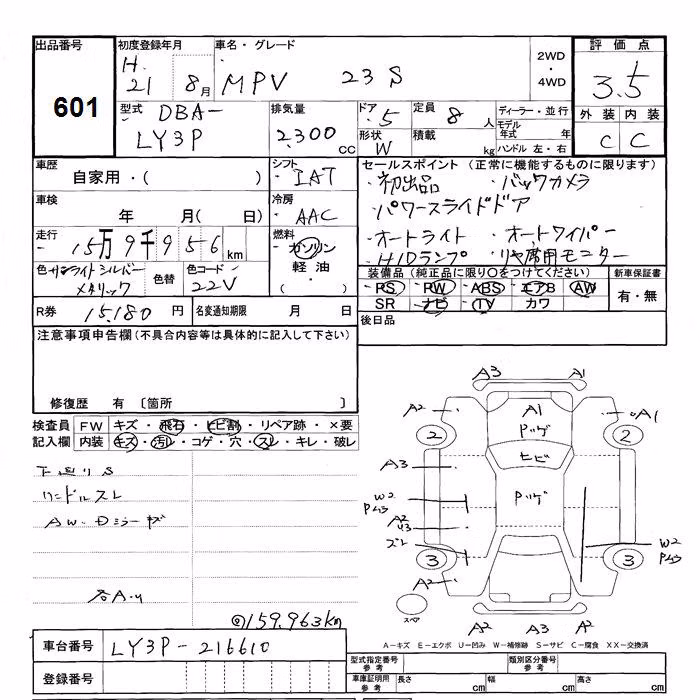 出品番号 初度登録年月 車名・グレード 2WD・4WD 評価点
601
H.21 8月 MPV 23S 3.5
型式 DBA-LY3P 排気量 2.300cc ドア 5 定員 8人 ディーラー・並行
形状 W 積載 kg モデル年式 年 ハンドル 左・右
外装 内装
C C
車歴 自家用・( ) シフト ・IAT
セールスポイント (正常に機能するものに限ります)
・初出品 ・バックカメラ
・パワースライドドア
・オートライト ・オートワイパー
・HIDランプ ・リヤ席用モニター
車検 年 月( 日) 冷房 ・AAC
走行 15万9千956km 燃料 ガソリン 軽油 ・( )
色 サンライトシルバーメタリック 色替 色コード 22V
装備品 (純正品に限り○をつけてください) 新車保証書
PS PW ABS エアB AW
SR ナビ TV カワ
有・無
R券 15,180円 名変通知期限 月 日
後日品
注意事項申告欄 (不具合内容等は具体的に記入して下さい)
修復歴 有 〔箇所 〕
検査員記入欄 FW キズ・飛石・ヒビ割・リペア跡・×要
内装 キズ・汚レ・コゲ・穴・スレ・キレ・破レ
下廻りS
ハンドルスレ
AW・Dミラーキズ
各A.U
@159.963km
A3 A1
A2 A1 A1
2 2
ヒビ
A3
W2
A2
U3
W2
3 3
A2
スペア
A2 A3 A2
A-キズ E-エクボ U-凹み W-補修跡 S-サビ C-腐食 XX-交換済
車台番号 LY3P-216610
登録番号
型式指定番号 参考 類別区分番号 参考
車庫証明用 参考 長さ cm 幅 cm 高さ cm